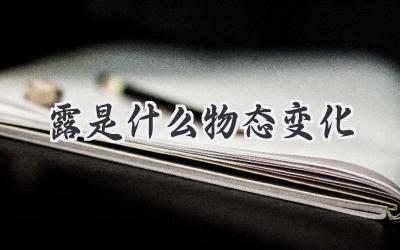 露是什么物态变化